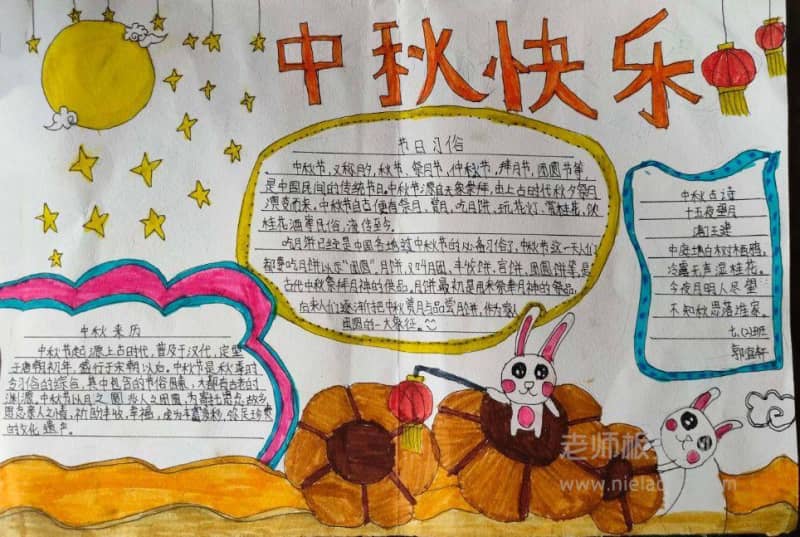 中秋快乐
节日习俗
中秋节，又称月夕，秋节，祭月节，仲秋节，拜月节，团圆节等
是中国民间的传统节日。中秋节源自天象崇拜，由上古时代秋夕祭月
演变而来，中秋节自古便有祭月、赏月、吃月饼、玩花灯、赏桂花、饮
桂花酒等民俗，流传至今。
吃月饼已经是中国各地过中秋节的必备习俗了，中秋节这一天人们
都要吃月饼以示"团圆"，月饼，又叫月团、丰收饼、宫饼、团圆饼等，是
古代中秋祭拜月神的供品，月饼最初是用来祭奉月神的祭品，
后来人们逐渐把中秋赏月与品尝月饼，作为家人
团圆的一大象征。
中秋古诗
十五夜望月
唐 王建
中庭地白树栖鸦，
冷露无声湿桂花。
今夜月明人尽望
不知秋思落谁家。
七、(2)班
中秋来历
中秋节起源上古时代，普及于汉代，定型
于唐朝初年，盛行于宋朝以后。中秋节是秋季时
令习俗的综合，其中包含的节俗因素，大都有古老的
渊源，中秋节以月之圆兆人之团圆，为寄托思念故乡
思念亲人之情，祈盼丰收、幸福，成为丰富多彩、弥足珍贵
的文化遗产。
老师板
www.niela